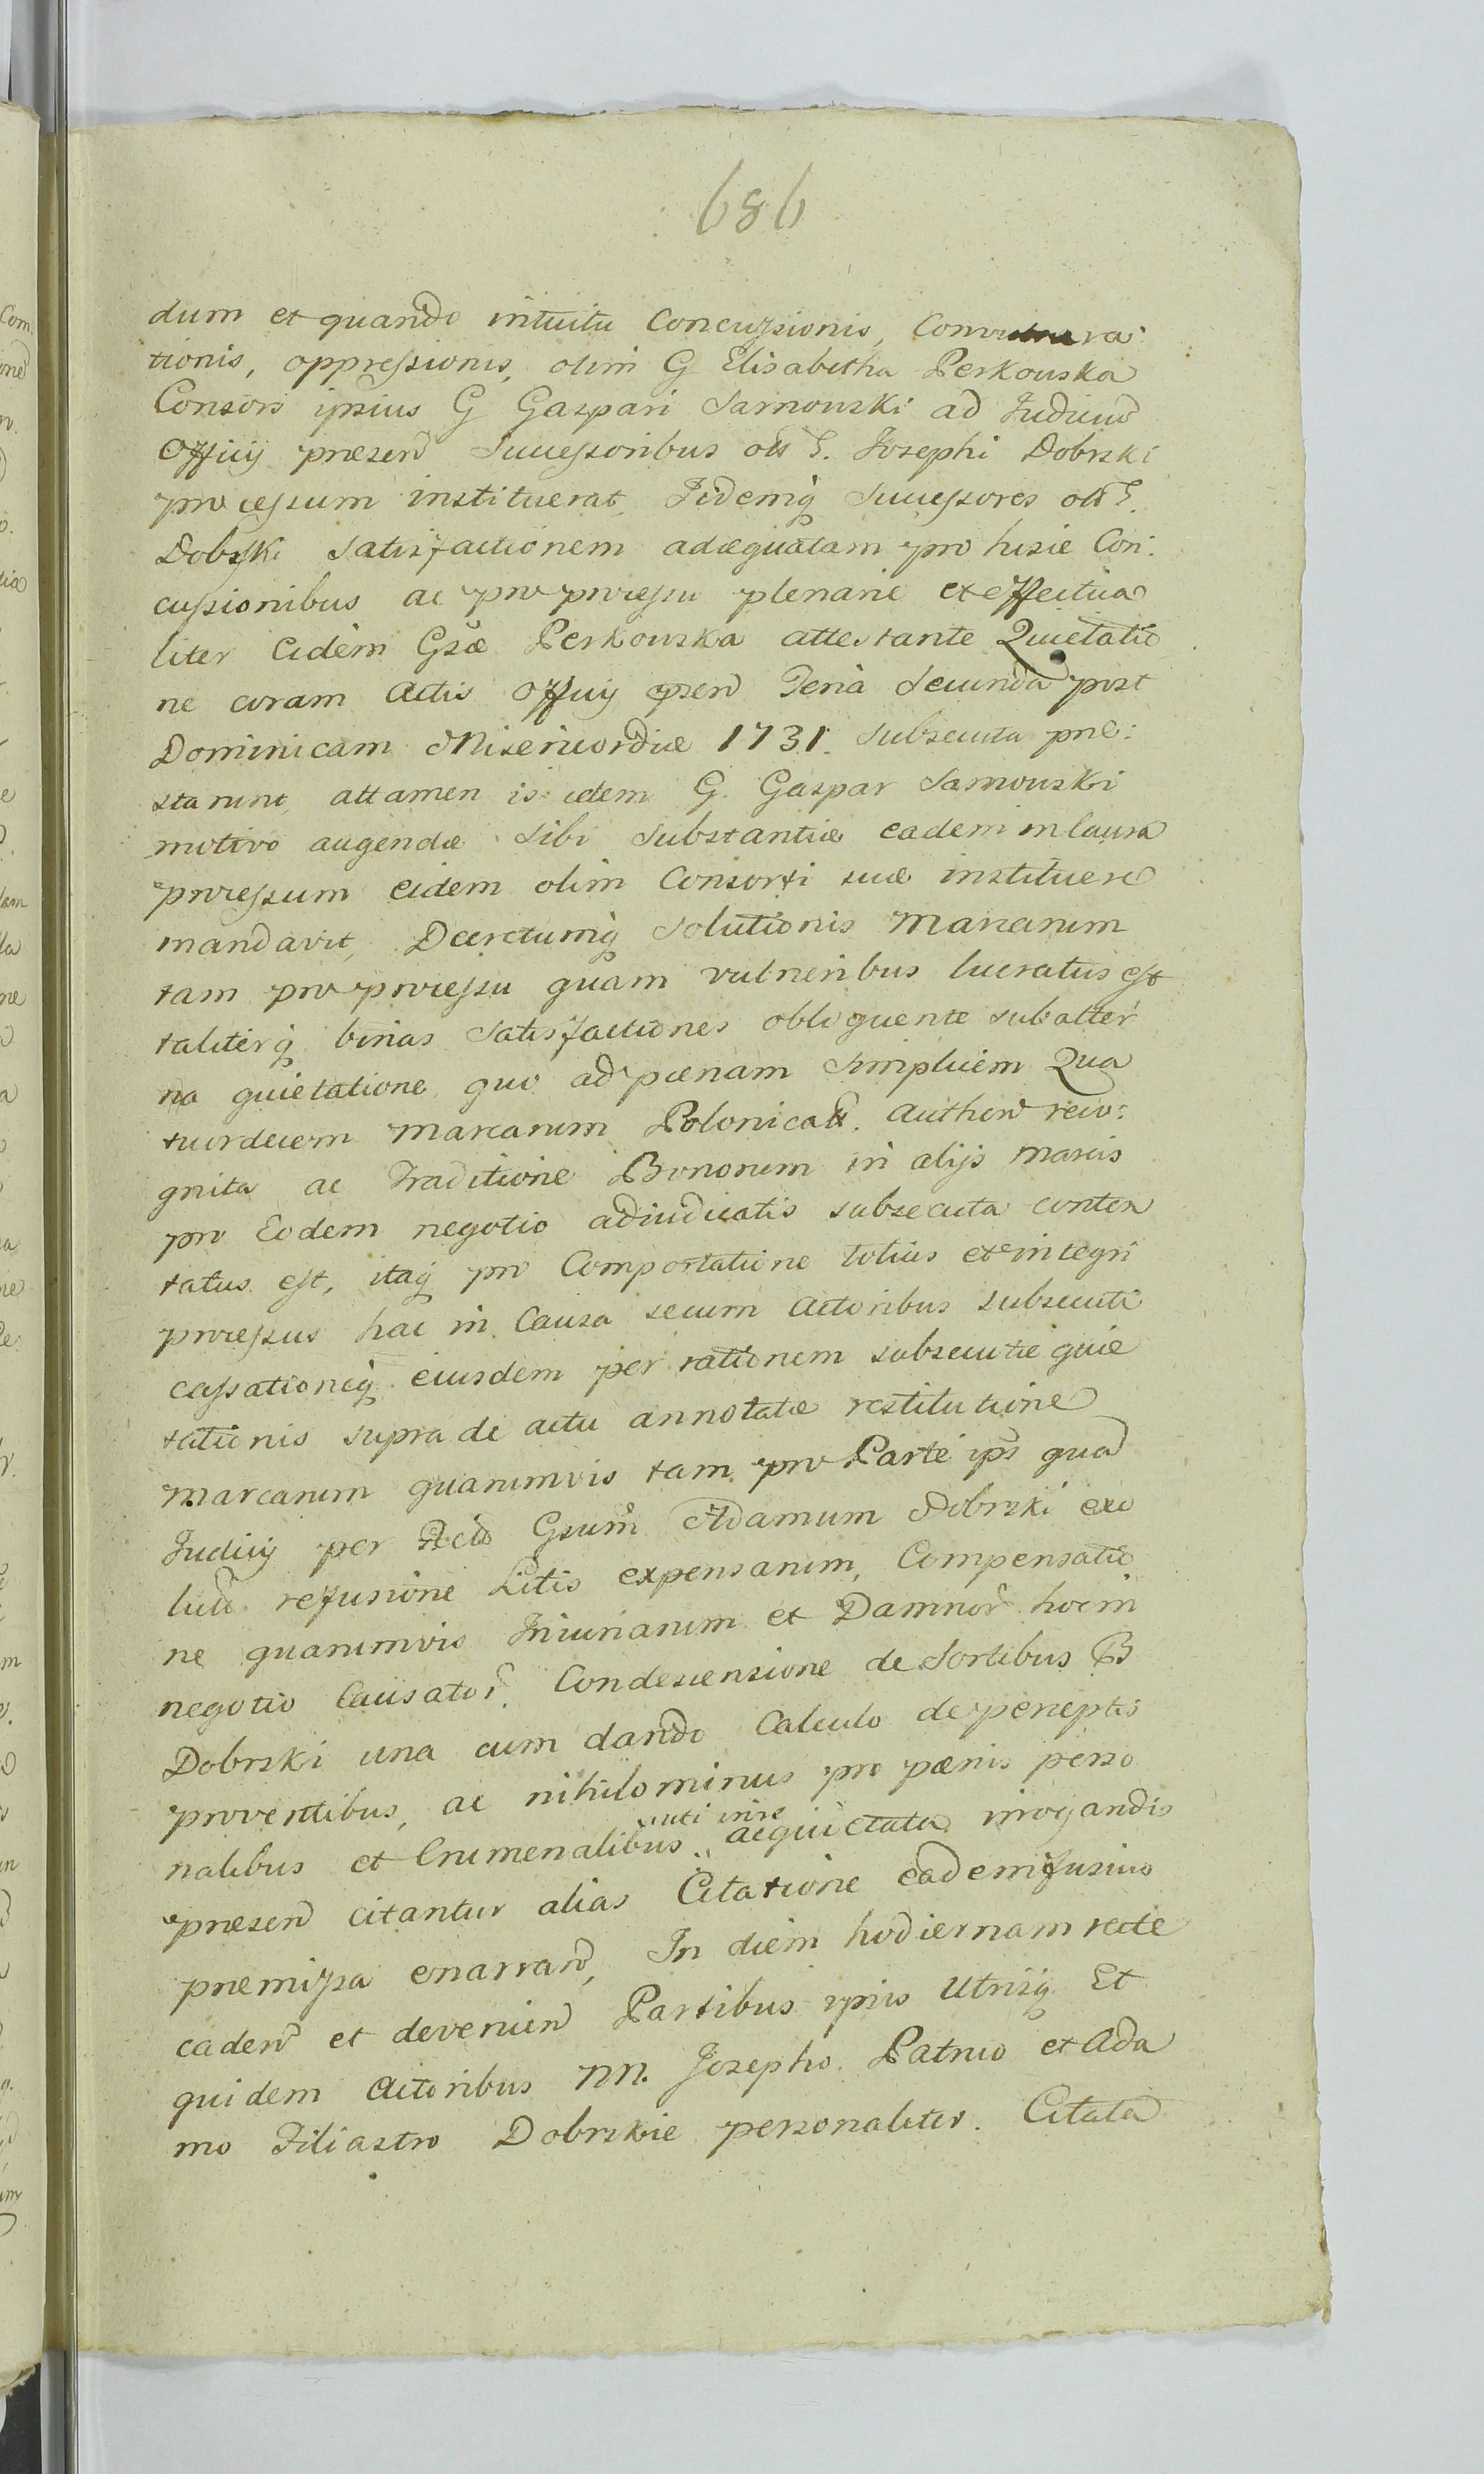 686
dum et quando intuitu Concussionis, Convulnera:
tionis, oppressionis, olim G Elisabetha Perkouska
Consors ipsius G Gaspari Sarnouski ad Judicium
Officij praesen Successoribus olis G. Josephi Dobrski
processum instituerat, Iidemq Successores olis G.
Dobrski satisfactionem adaequatam pro husie Con:
cussionibus ac pro processu plenarie et effectua
liter eidem Gsae Perkouska attestante Quietatio
ne coram Actis Officij praesen Feria Secunda post
Dominicam Misericordiae 1731. subsecuta prae:
starunt, attamen is idem G. Gaspar Sarnouski
motivo augendae sibi substantiae eadem in Causa
processum eidem olim Consorti suae instituere
mandavit, Decretumq solutionis Marcarum
tam pro processu quam vulneribus lucratus est
taliterq binas satisfactiones obloquente subalter
na quietatione, quo ad poenam simplicem Qua
tuordecem marcarum Polonicali. Authore reco:
gnita ac Traditione Bonorum in alijs marcis
pro Eodem negotio adiudicatis subsecuta conten
tatus est, itaq pro Comportatione totius et integri
processus hac in Causa secum Actoribus subsecuti
cassationeq eiusdem per rationem subsecutae quie
tationis supra de actu annotatae restitutione
marcarum quarumvis tam pro Parte ips qua
Judicij per Gsum Adamum Dobrski exo
lud refusione Litis expensarum, Compensatio
ne quarumvis Iniuriarum et Damnor hocin
negotio Causator. Condescensione de Sortibus B
Dobrski una cum dando Calculo de perceptis
proventibus, ac nihilominus pro paenis perso
nalibus et Crimenalibus uti iuris acquietata irrogandis
praesen citantur alias Citatione eadem fusius
praemissa enarran, In diem hodiernam recte
caden et devenien Partibus ipsis Utrisq Et
quidem Actoribus NN. Josepho Patruo et Ada
mo Filiastro Dobrskie personaliter. Citata